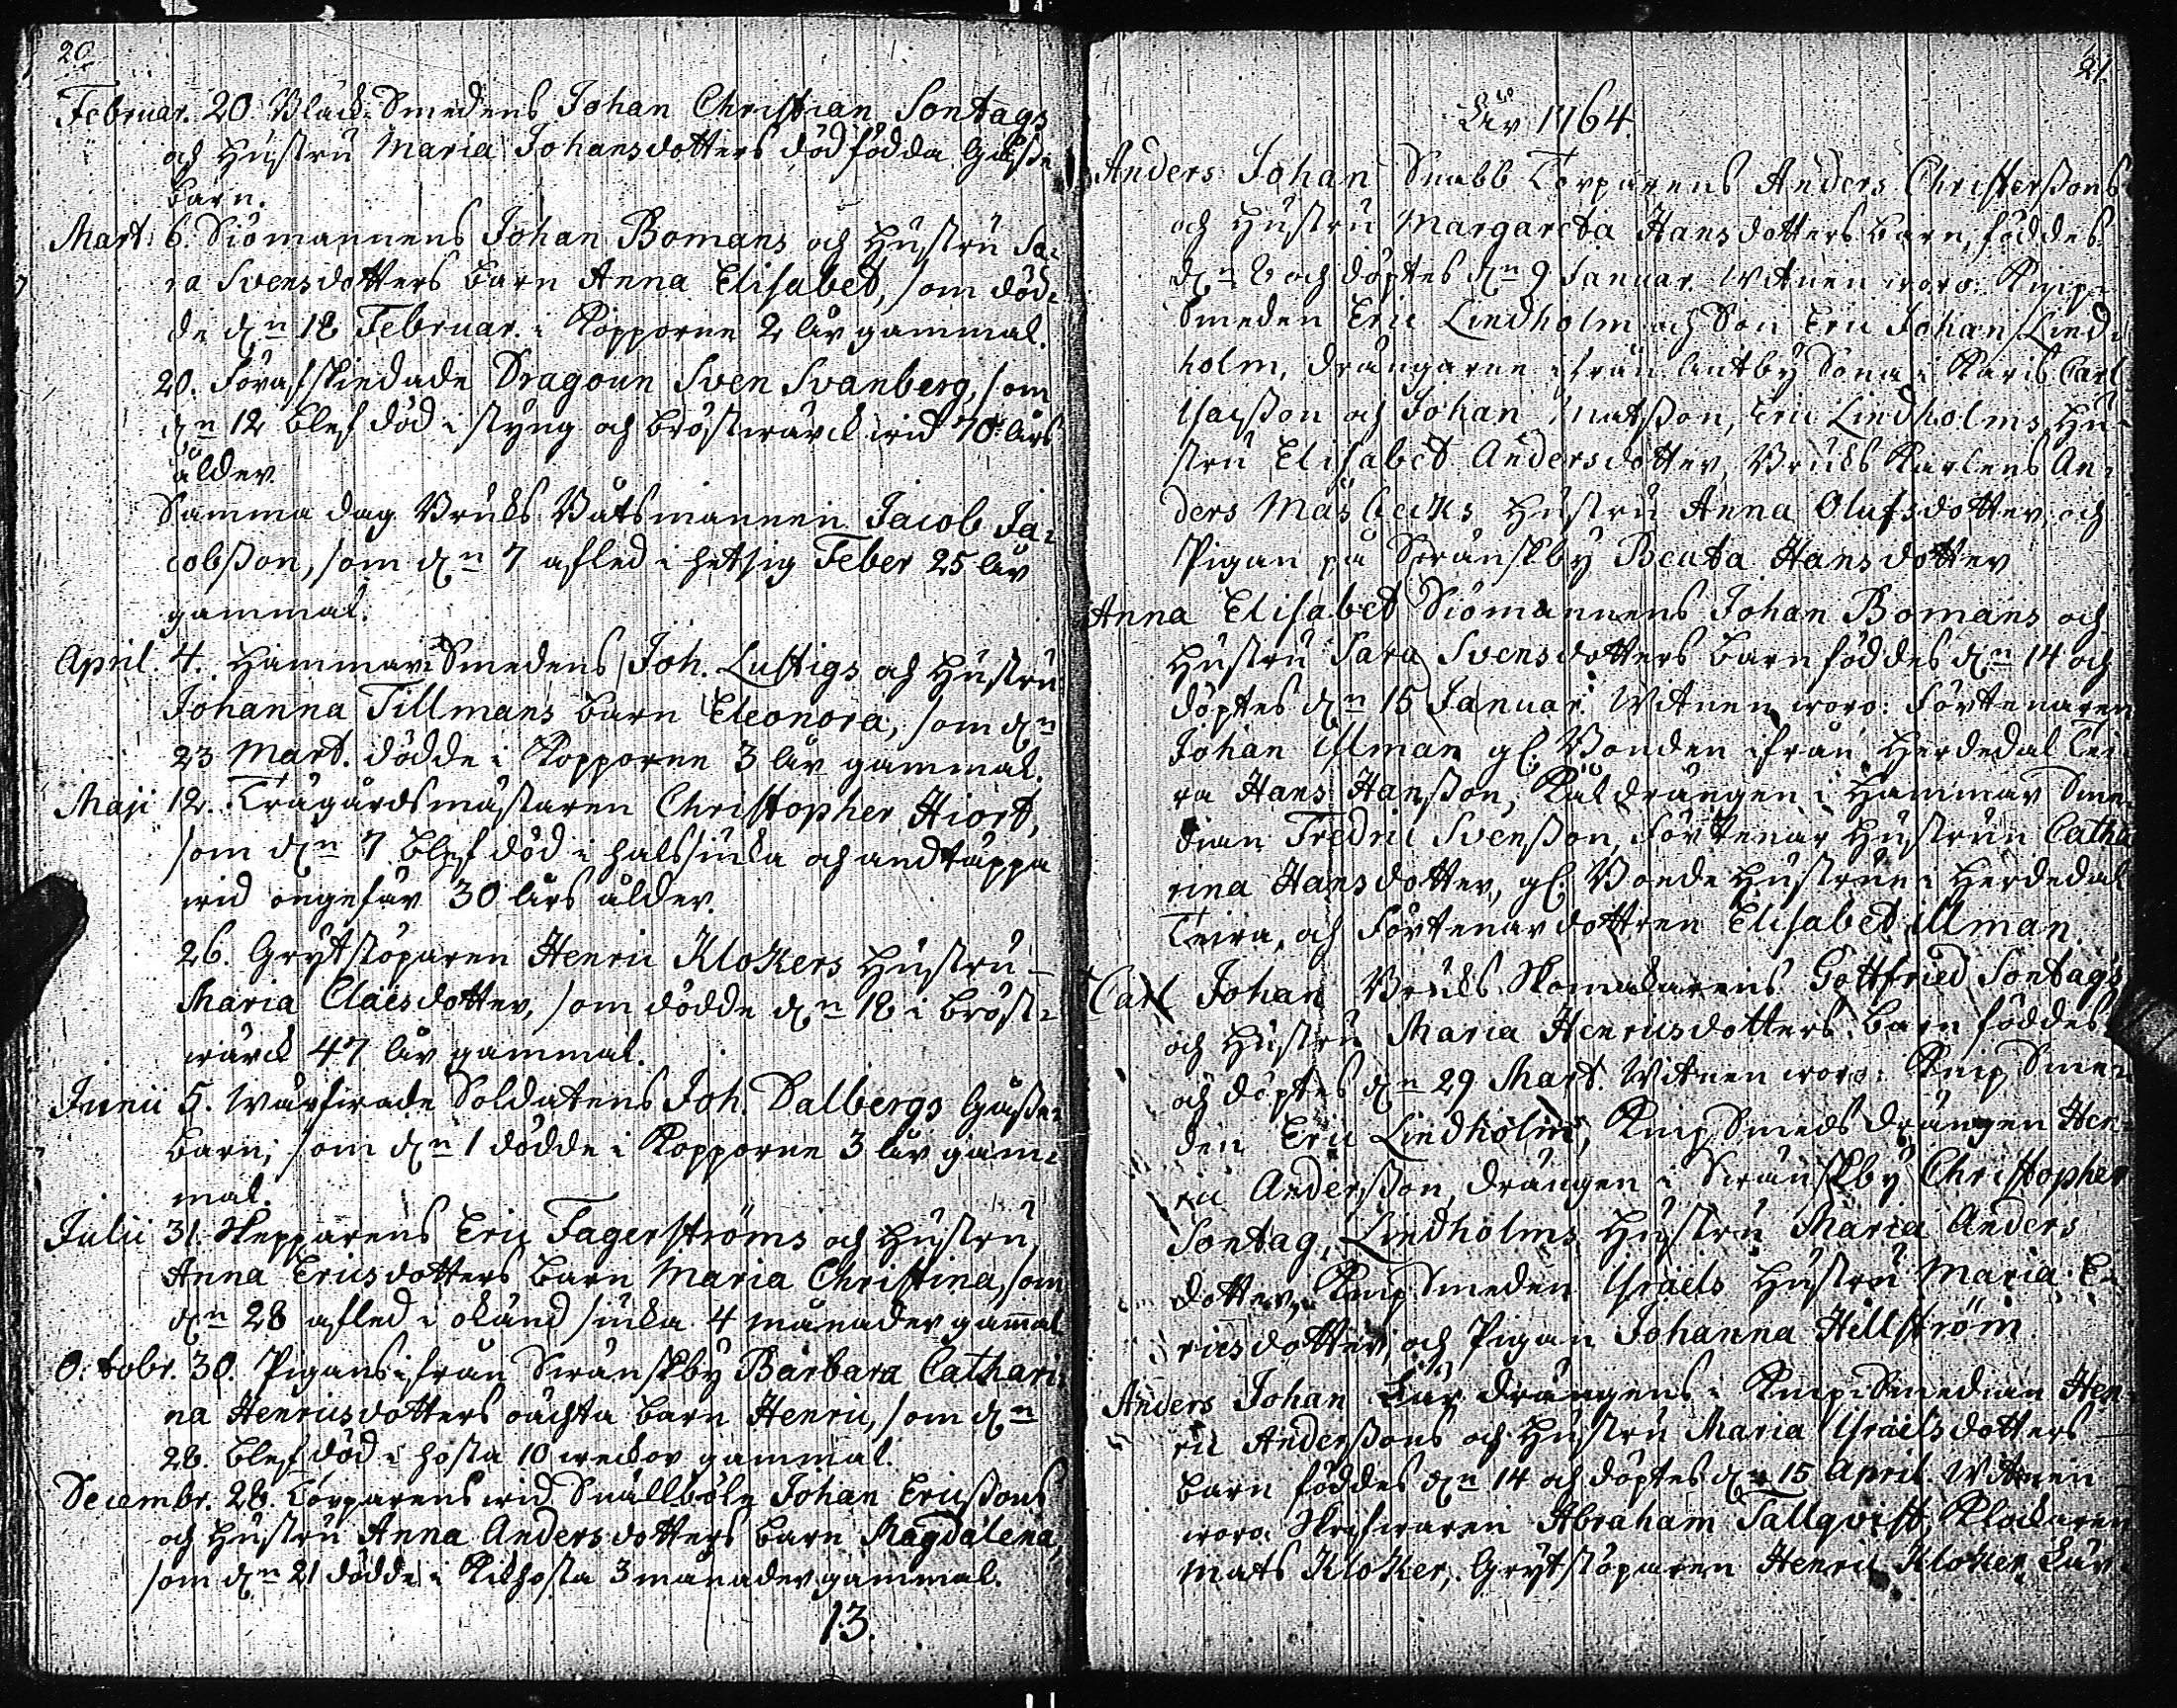 20.
Februar. 20. Black-Smedens Johan Christian Sontags
och Hustru Maria Johansdotters dödfödda Gåsse
barn.
Mart: 6. Siömannens Johan Bomans och Hustru Sa-
ra Svensdotters barn Anna Elisabet, som död-
de dn 18 Februar. i Kopporne 2 år gammal.
20. Förafskiedade Dragoun Sven Svanberg, som
dn 12 blef död i styng och bröstwärck wid 70 års
ålder.
Samma dag Bruks Båtsmannen Jacob Ja-
cobsson, som dn 7 afled i hetsig Feber 25 år
gammal.
April. 4. Hammar-Smedens Joh. Lustigs och Hustru
Johanna Tillmans barn Eleonora, som dn
23 Mart. dödde i Kopporne 3 år gammal.
Maji 12. Trägårdsmästaren Christopher Hiort,
som dn 7 blef död i halssiuka och andtäppa
wid ongefär 30 års ålder.
26. Grytstöparen Henric Klokers Hustru
Maria Claesdotter, som dödde dn 18 i bröst-
wärck 47 år gammal.
Junii 5. Wärfwade Soldatens Joh. Dalbergs Gåsse-
barn, som dn 1 dödde i Kopporne 3 år gam-
mal.
Julii 31. Skepparens Eric Fagerströms och Hustru
Anna Ericsdotters barn Maria Christina, som
dn 28 afled i okänd siuka 4 månader gamal
Octobr. 30. Pigans ifrån Swänskby Barbara Cathari-
na Henricsdotters oächta barn Henric, som dn
28. blef död i hosta 10 weckor gammal.
Decembr. 28. Torparens wid Snällböle Johan Ericssons
och Hustru Anna Andersdotters barn Magdalena,
som dn 21 dödde i Kikhosta 3 månader gammal.
13.
21.
År 1764.
Anders Johan Snabb Torparens Anders Christerssons
och Hustru Margareta Hansdotters barn, föddes
dn 8 och döptes dn 9 Januar. Witnen woro: Knip-
Smeden Eric Lindholm och Son Eric Johan Lind-
holm, drängarne ifrån Sona i Karis Carl
Isacsson och Johan Matsson, Eric Lindholms Hu-
stru Elisabet Andersdotter, Bruks Karlens An-
ders Måsbecks Hustru Anna Olufsdotter och
Pigan på Swänskby Beata Hansdotter
Anna Elisabet Siömannens Johan Bomans och
Hustru Sara Svensdotters barn föddes dn 14 och
döptes dn 15 Januar. Witnen woro: Förtenaren
Johan Ullman gl. Bonden ifrån Herdedal Tei-
ra Hans Hansson, Kåldrängen i Hammar Sme-
dian Fredric Svensson, Förtenar Hustrun Catha
rina Hansdotter, gl. Bonde Hustrun i Herdedal
Teira, och Förtenardottren Elisabet Ullman.
Carl Johan Bruks Skomakarens Gottfried Sontags
och Hustru Maria Henricsdotters barn föddes
och döptes dn 29 Mart. Witnen woro: Knip Sme-
den Eric Lindholm, Knip Smeds drängen Hen-
ric Andersson, drängen i Swänskby Christopher
Sontag, Lindholms Hustru Maria Anders
dotter, Knip Smeden Israels Hustru Maria E-
ricsdotter, och Pigan Johanna Hellström.
Anders Johan Lär drängens i Knip-Smedian Hen-
ric Anderssons och Hustru Maria Israelsdotters
barn föddes dn 14 och döptes dn 15 April. Witnen
woro. Skrifwaren Abraham Tallqvist, Klockaren
Mats Kloker, Grytstöparen Henric Kloker, Lär-